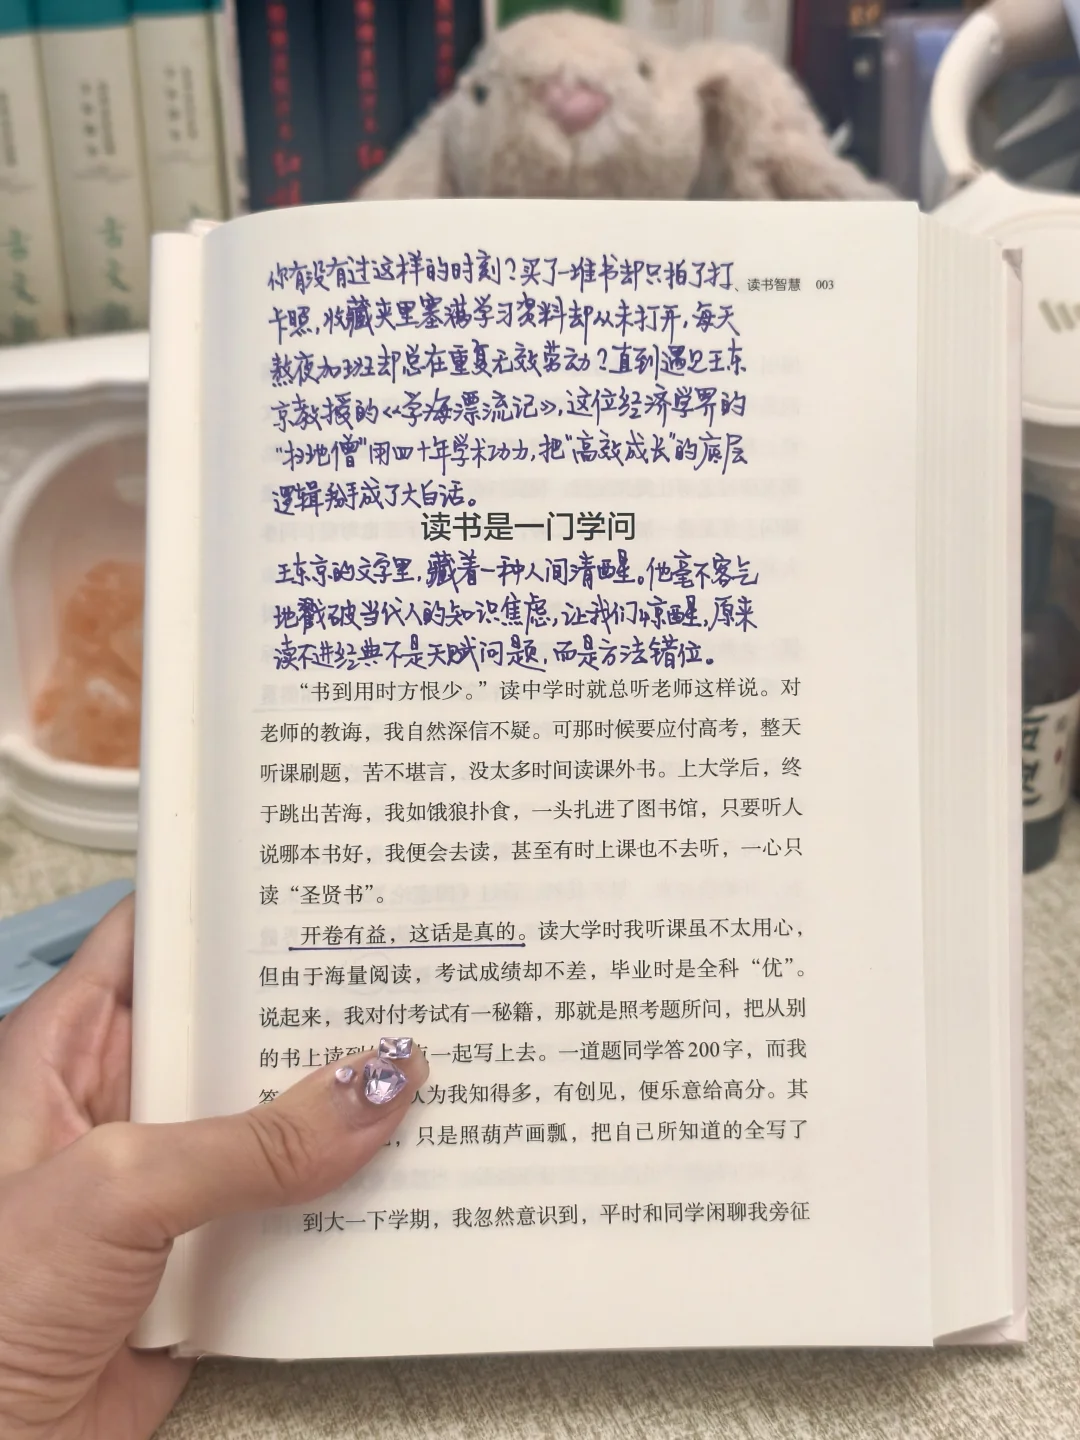 你有没有过这样的时刻？买了一堆书却只拍了打
、读书智慧 003
卡照，收藏夹里塞满学习资料却从未打开，每天
熬夜加班却总在重复无效劳动？直到遇见王东
京教授的《学海漂流记》，这位经济学界的
“扫地僧”用四十年学术功力，把“高效成长”的底层
逻辑掰成了大白话。
读书是一门学问
王东京的文字里，藏着一种人间清醒。他毫不客气
地戳破当代人的知识焦虑，让我们惊醒，原来
读不进经典不是天赋问题，而是方法错位。
“书到用时方恨少。”读中学时就总听老师这样说。对
老师的教诲，我自然深信不疑。可那时候要应付高考，整天
听课刷题，苦不堪言，没太多时间读课外书。上大学后，终
于跳出苦海，我如饿狼扑食，一头扎进了图书馆，只要听人
说哪本书好，我便会去读，甚至有时上课也不去听，一心只
读“圣贤书”。
开卷有益，这话是真的。读大学时我听课虽不太用心，
但由于海量阅读，考试成绩却不差，毕业时是全科“优”。
说起来，我对付考试有一秘籍，那就是照考题所问，把从别
的书上读到 一起写上去。一道题同学答200字，而我
为我知得多，有创见，便乐意给高分。其
，只是照葫芦画瓢，把自己所知道的全写了
到大一下学期，我忽然意识到，平时和同学闲聊我旁征
古文
古文
红
红